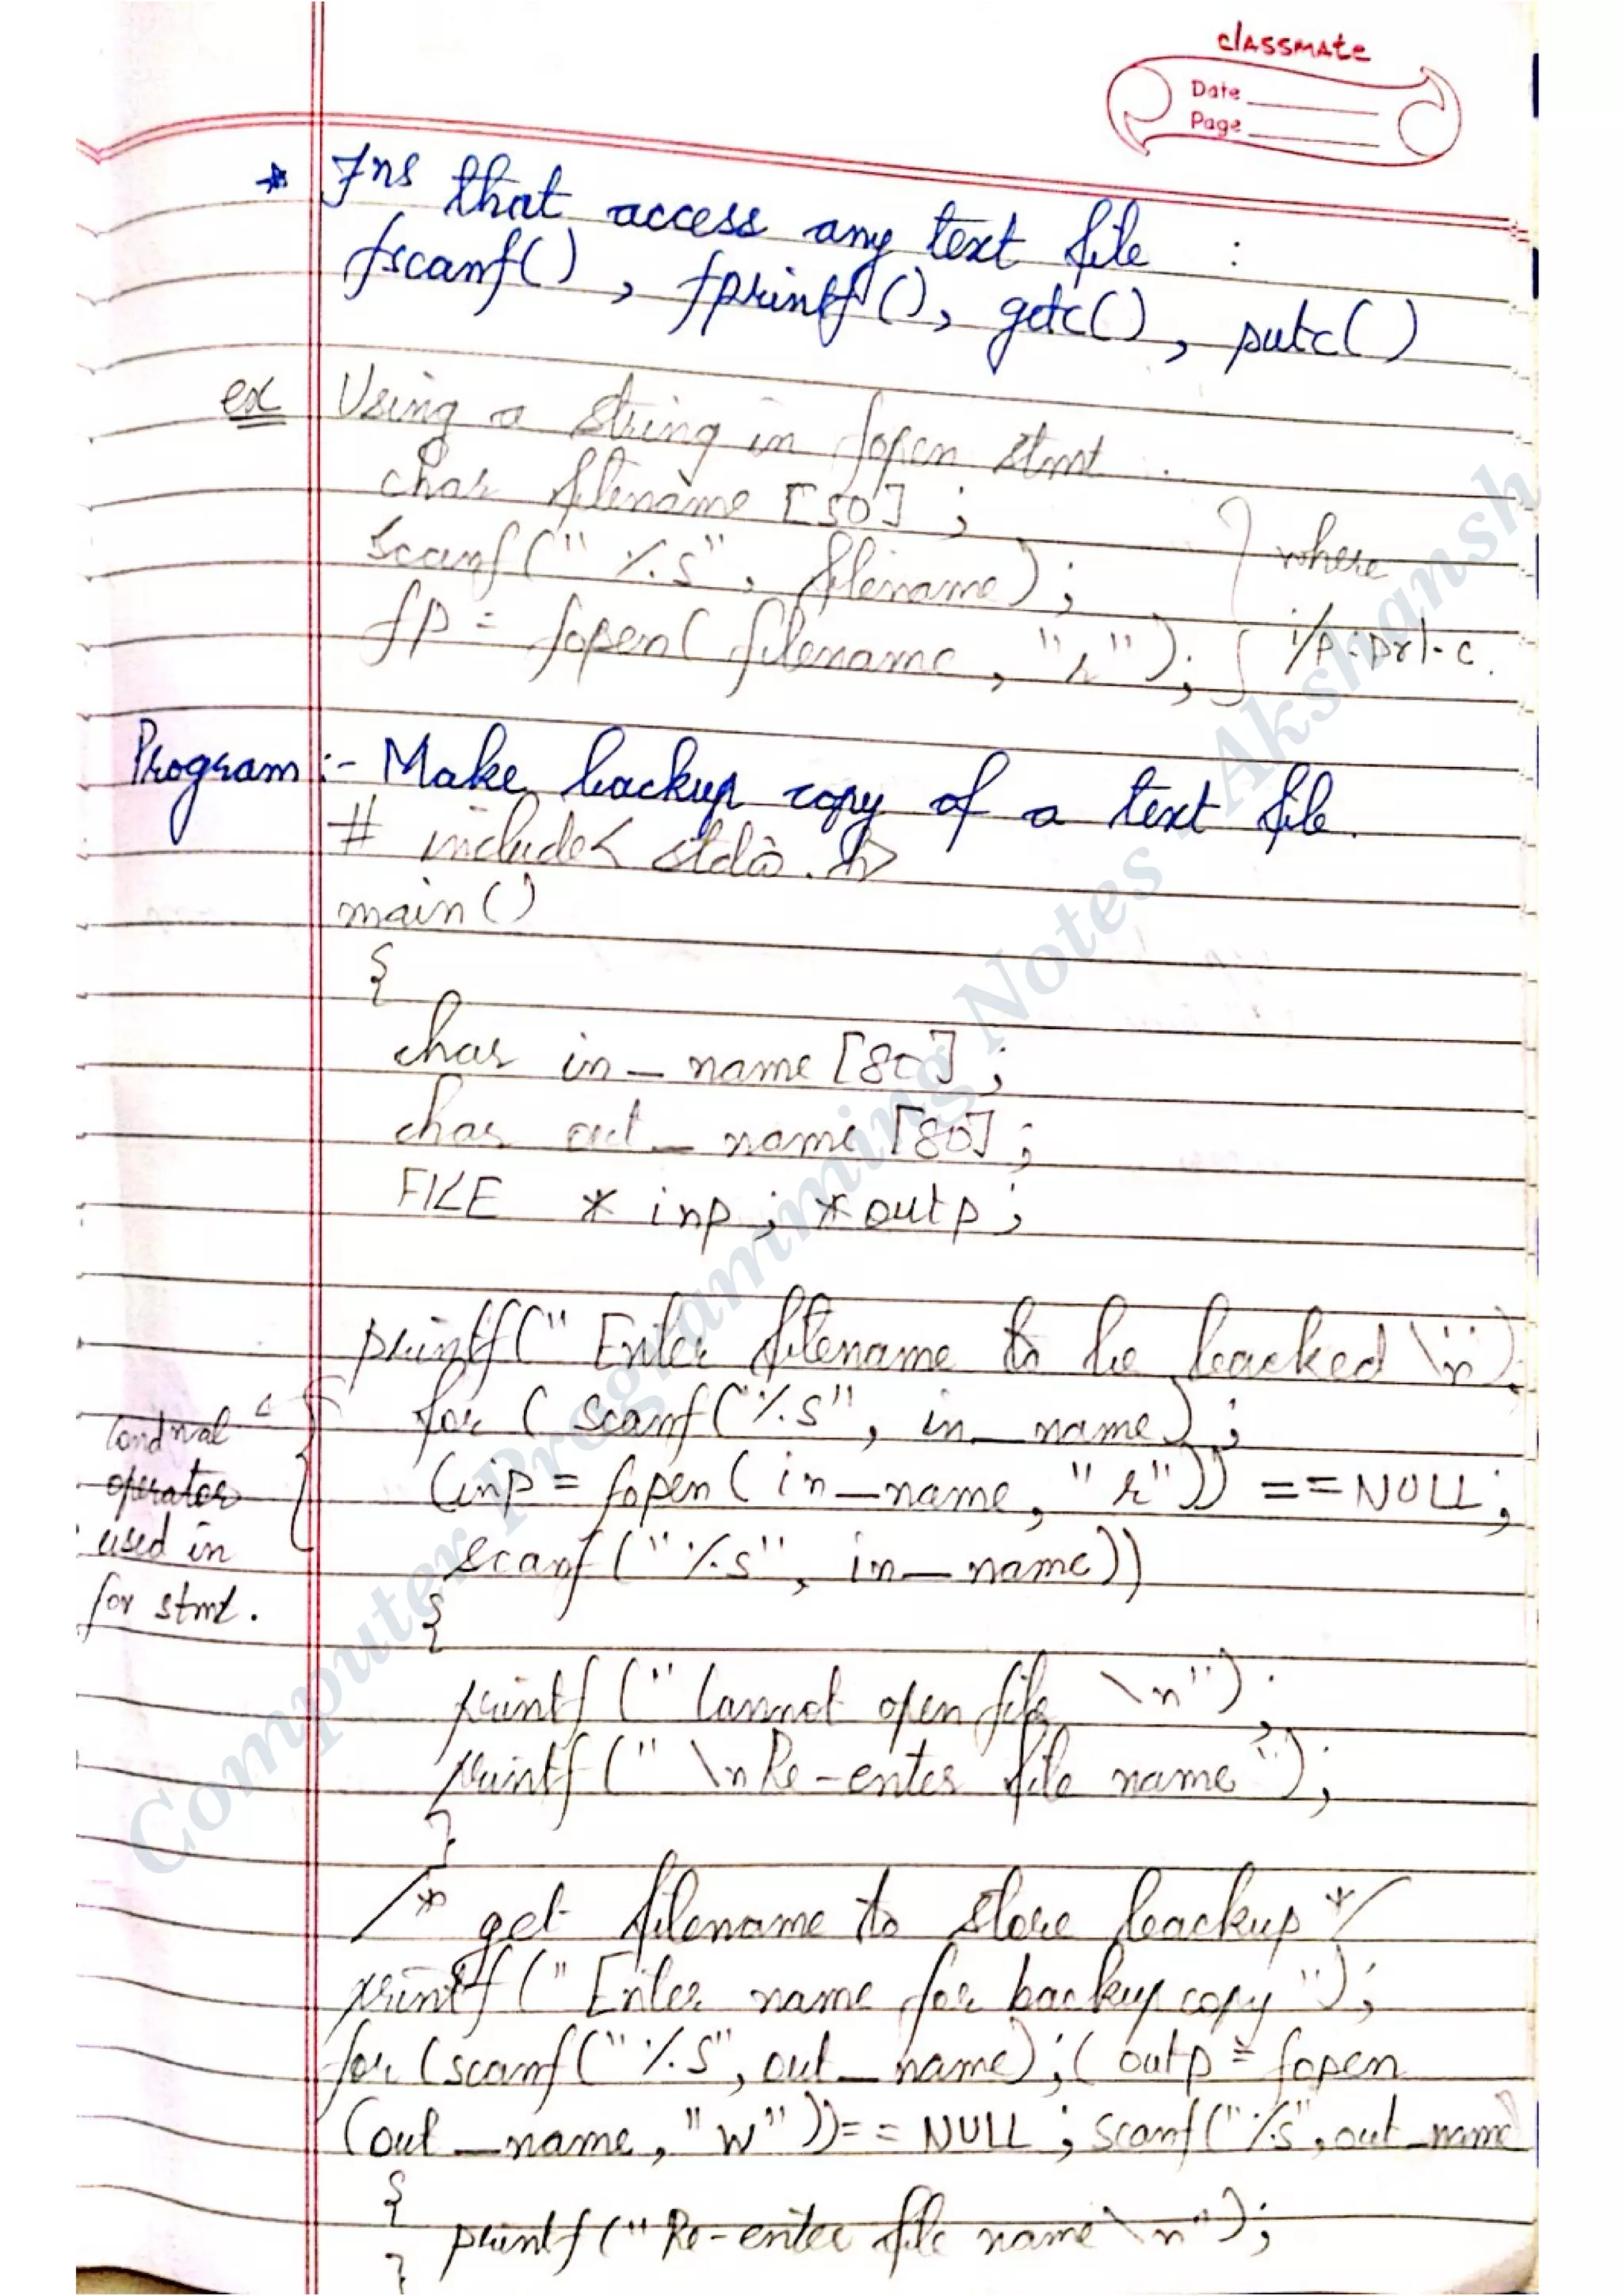 classmate
Date
Page
* Fns that access any text file :
fscanf() , fprintf(), getc() , putc()
ex Using a string in fopen stmt .
char filename [50] ;
scanf(" %s", filename) ;
fp = fopen( filename , "r" ) ;
} where
i/p : pr1.c.
Program :- Make backup copy of a text file.
# include< stdio.h>
main()
{
char in_name [80] ;
char out_name [80] ;
FILE * inp ; *outp ;
printf(" Enter filename to be backed \n").
for ( scanf("%s", in_name) ;
(inp = fopen( in_name, "r")) == NULL ;
scanf("%s", in_name))
{
Condnal
operator
used in
for stmt.
printf (" Cannot open file \n") ;
printf (" \nRe-enter file name") ;
}
/* get filename to store backup */
printf (" Enter name for backup copy ") ;
for (scanf("%s", out_name) ; ( outp = fopen
(out_name, "w" ))== NULL ; scanf("%s", out_name
{
printf ("Re-enter file name \n") ;
}
Computer Programming Notes Akshansh